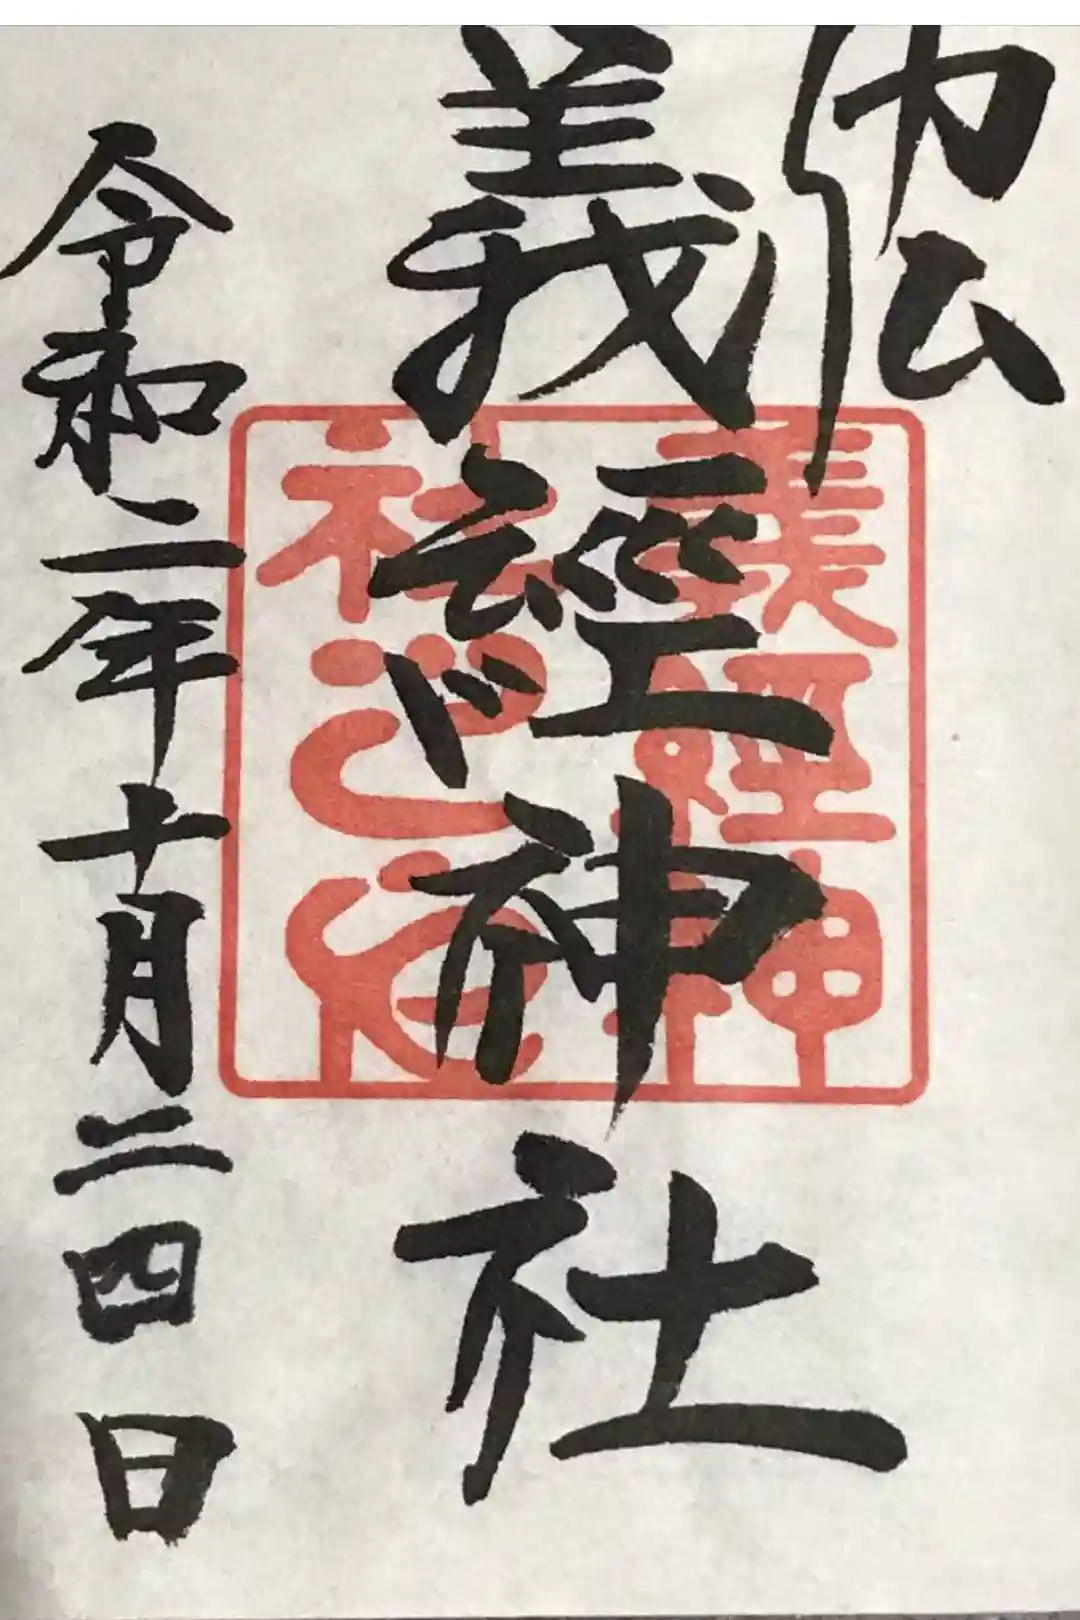 義經神社
令和二年十月二四日
義經神
社之印